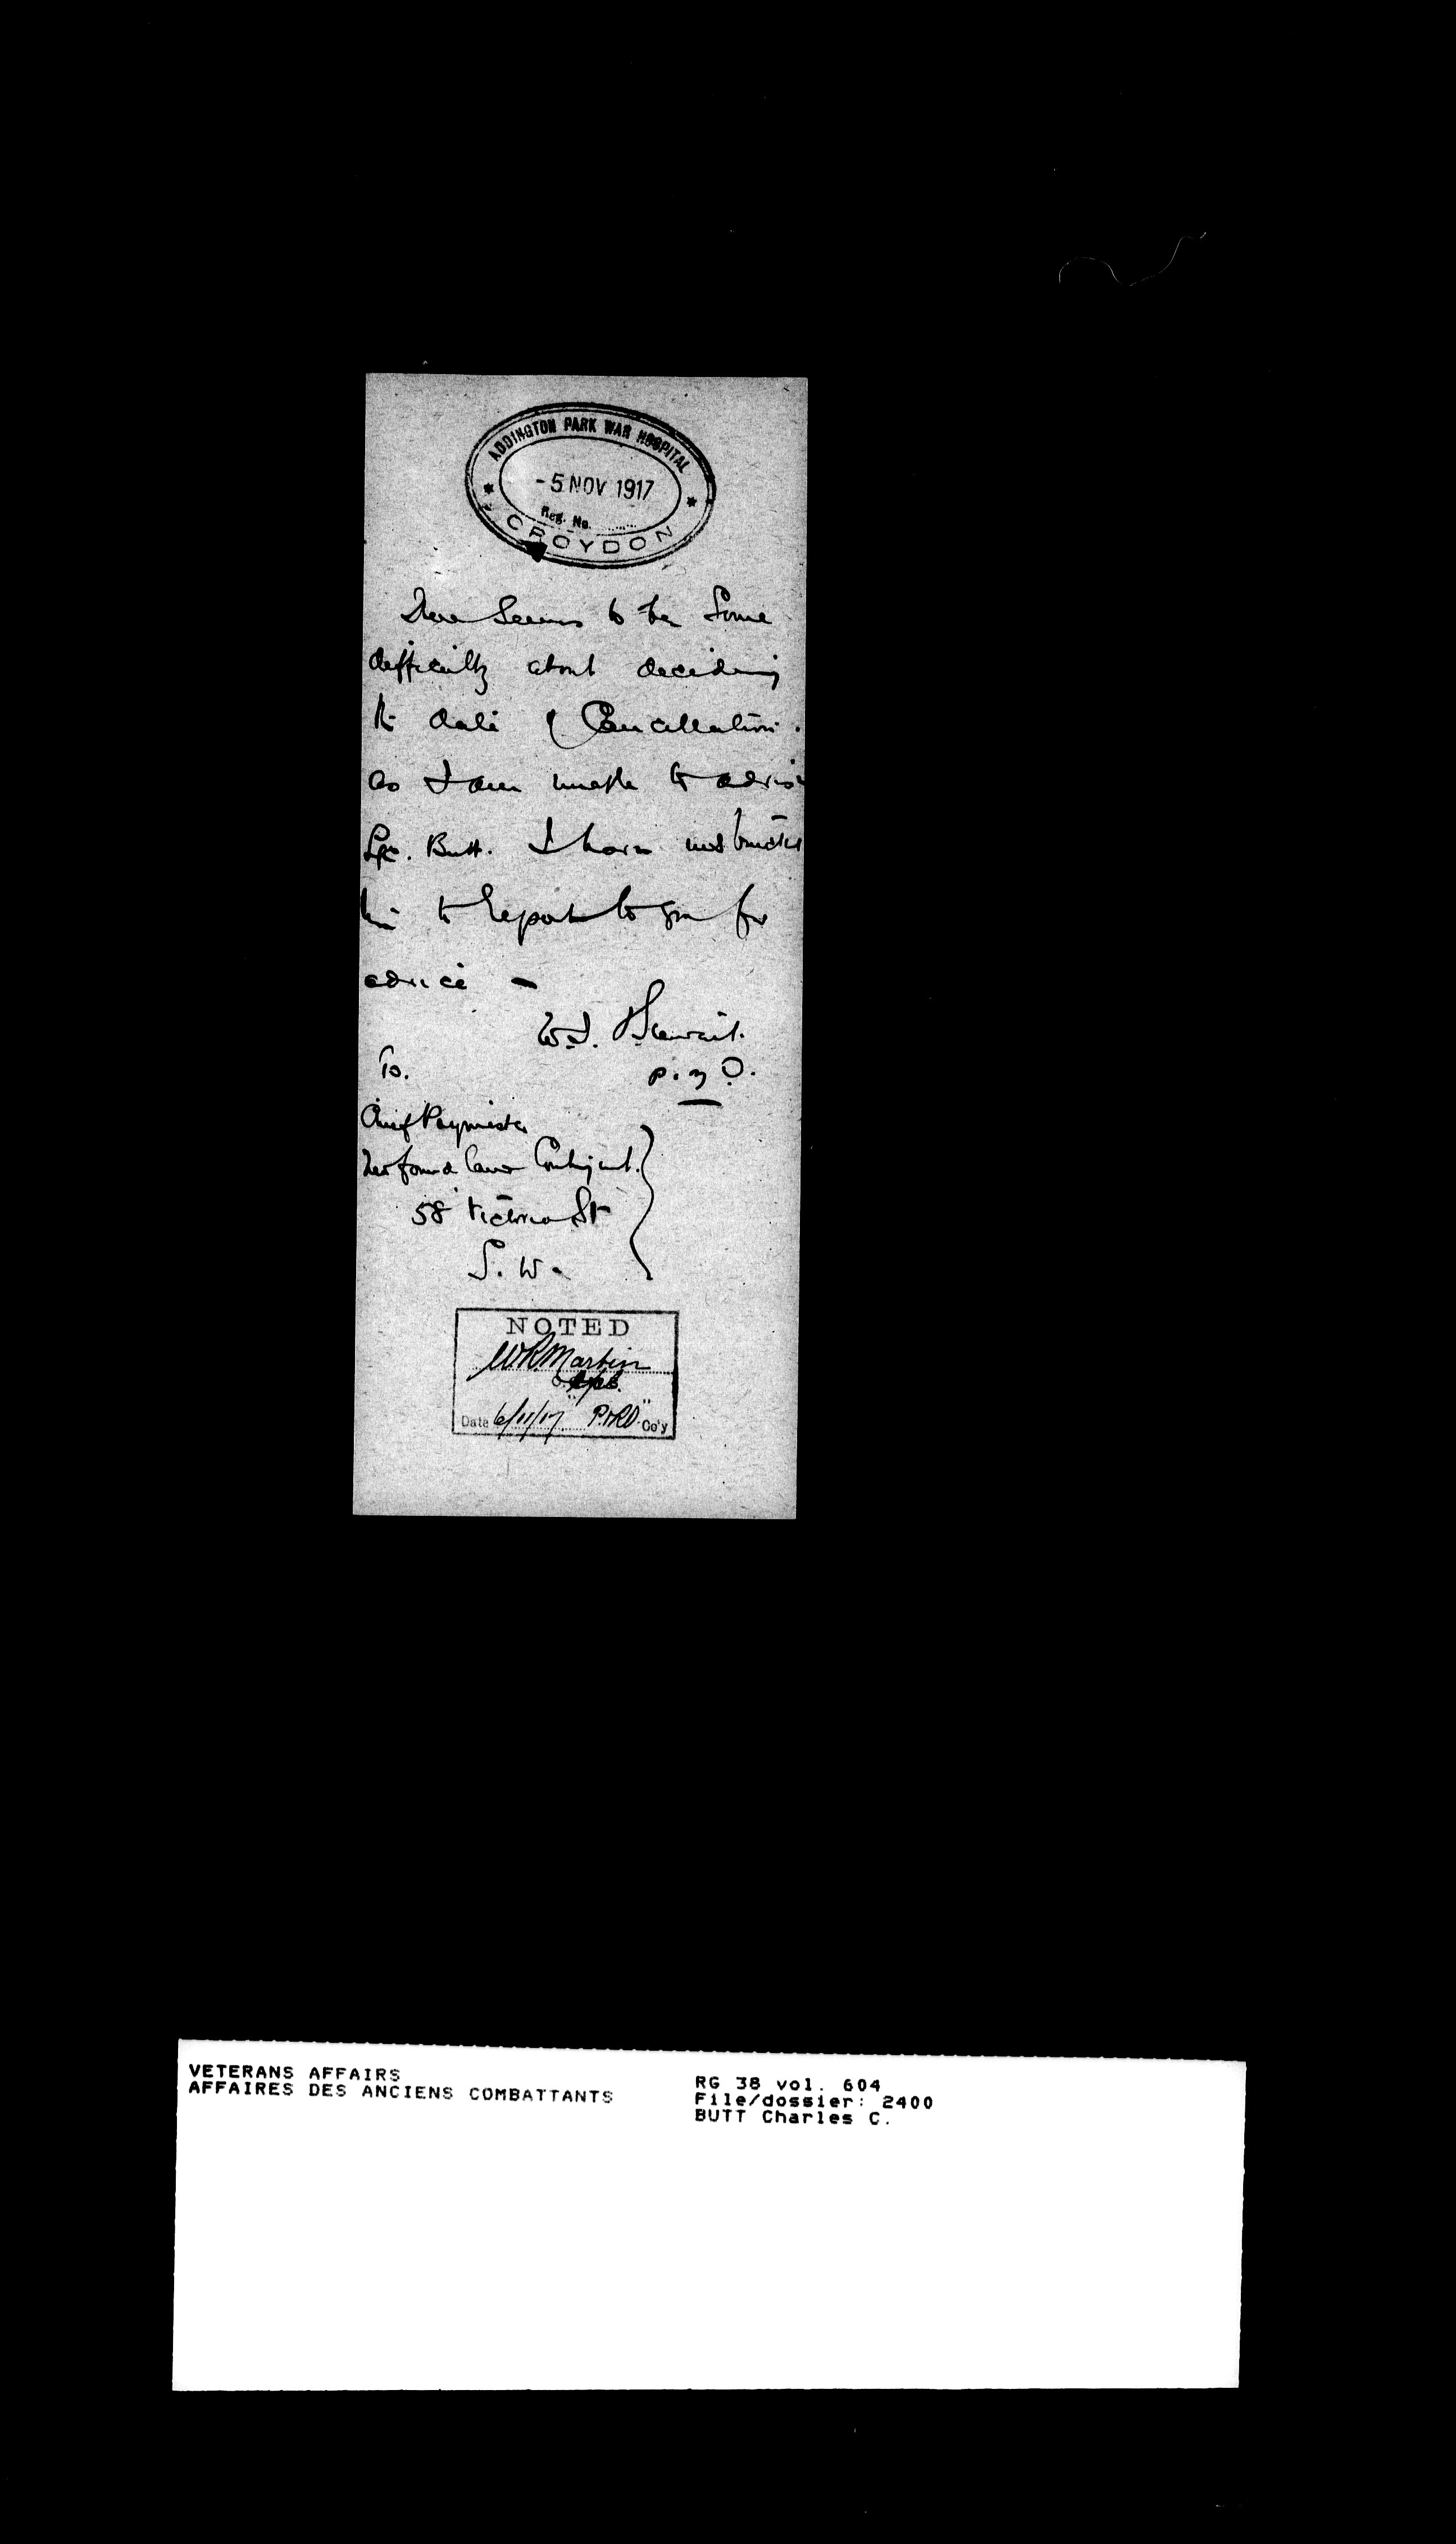 ADDINGTON PARK WAR HOSPITAL
-5 NOV 1917
Reg. No.
CROYDON
There seems to be some
difficulty about deciding
the date of Cancellation.
as I am unable to advise
Pte. Butt. I have instructed
him to report to you for
advice -
W.J. Stewart.
To.
Chief Paymaster
Newfoundland Contingent.
58 Victoria St
S.W.
NOTED
W.R. Martin
Date 6/11/17 P.&R.D. Co'y
VETERANS AFFAIRS
AFFAIRES DES ANCIENS COMBATTANTS
RG 38 vol. 604
File/dossier: 2400
BUTT Charles C.